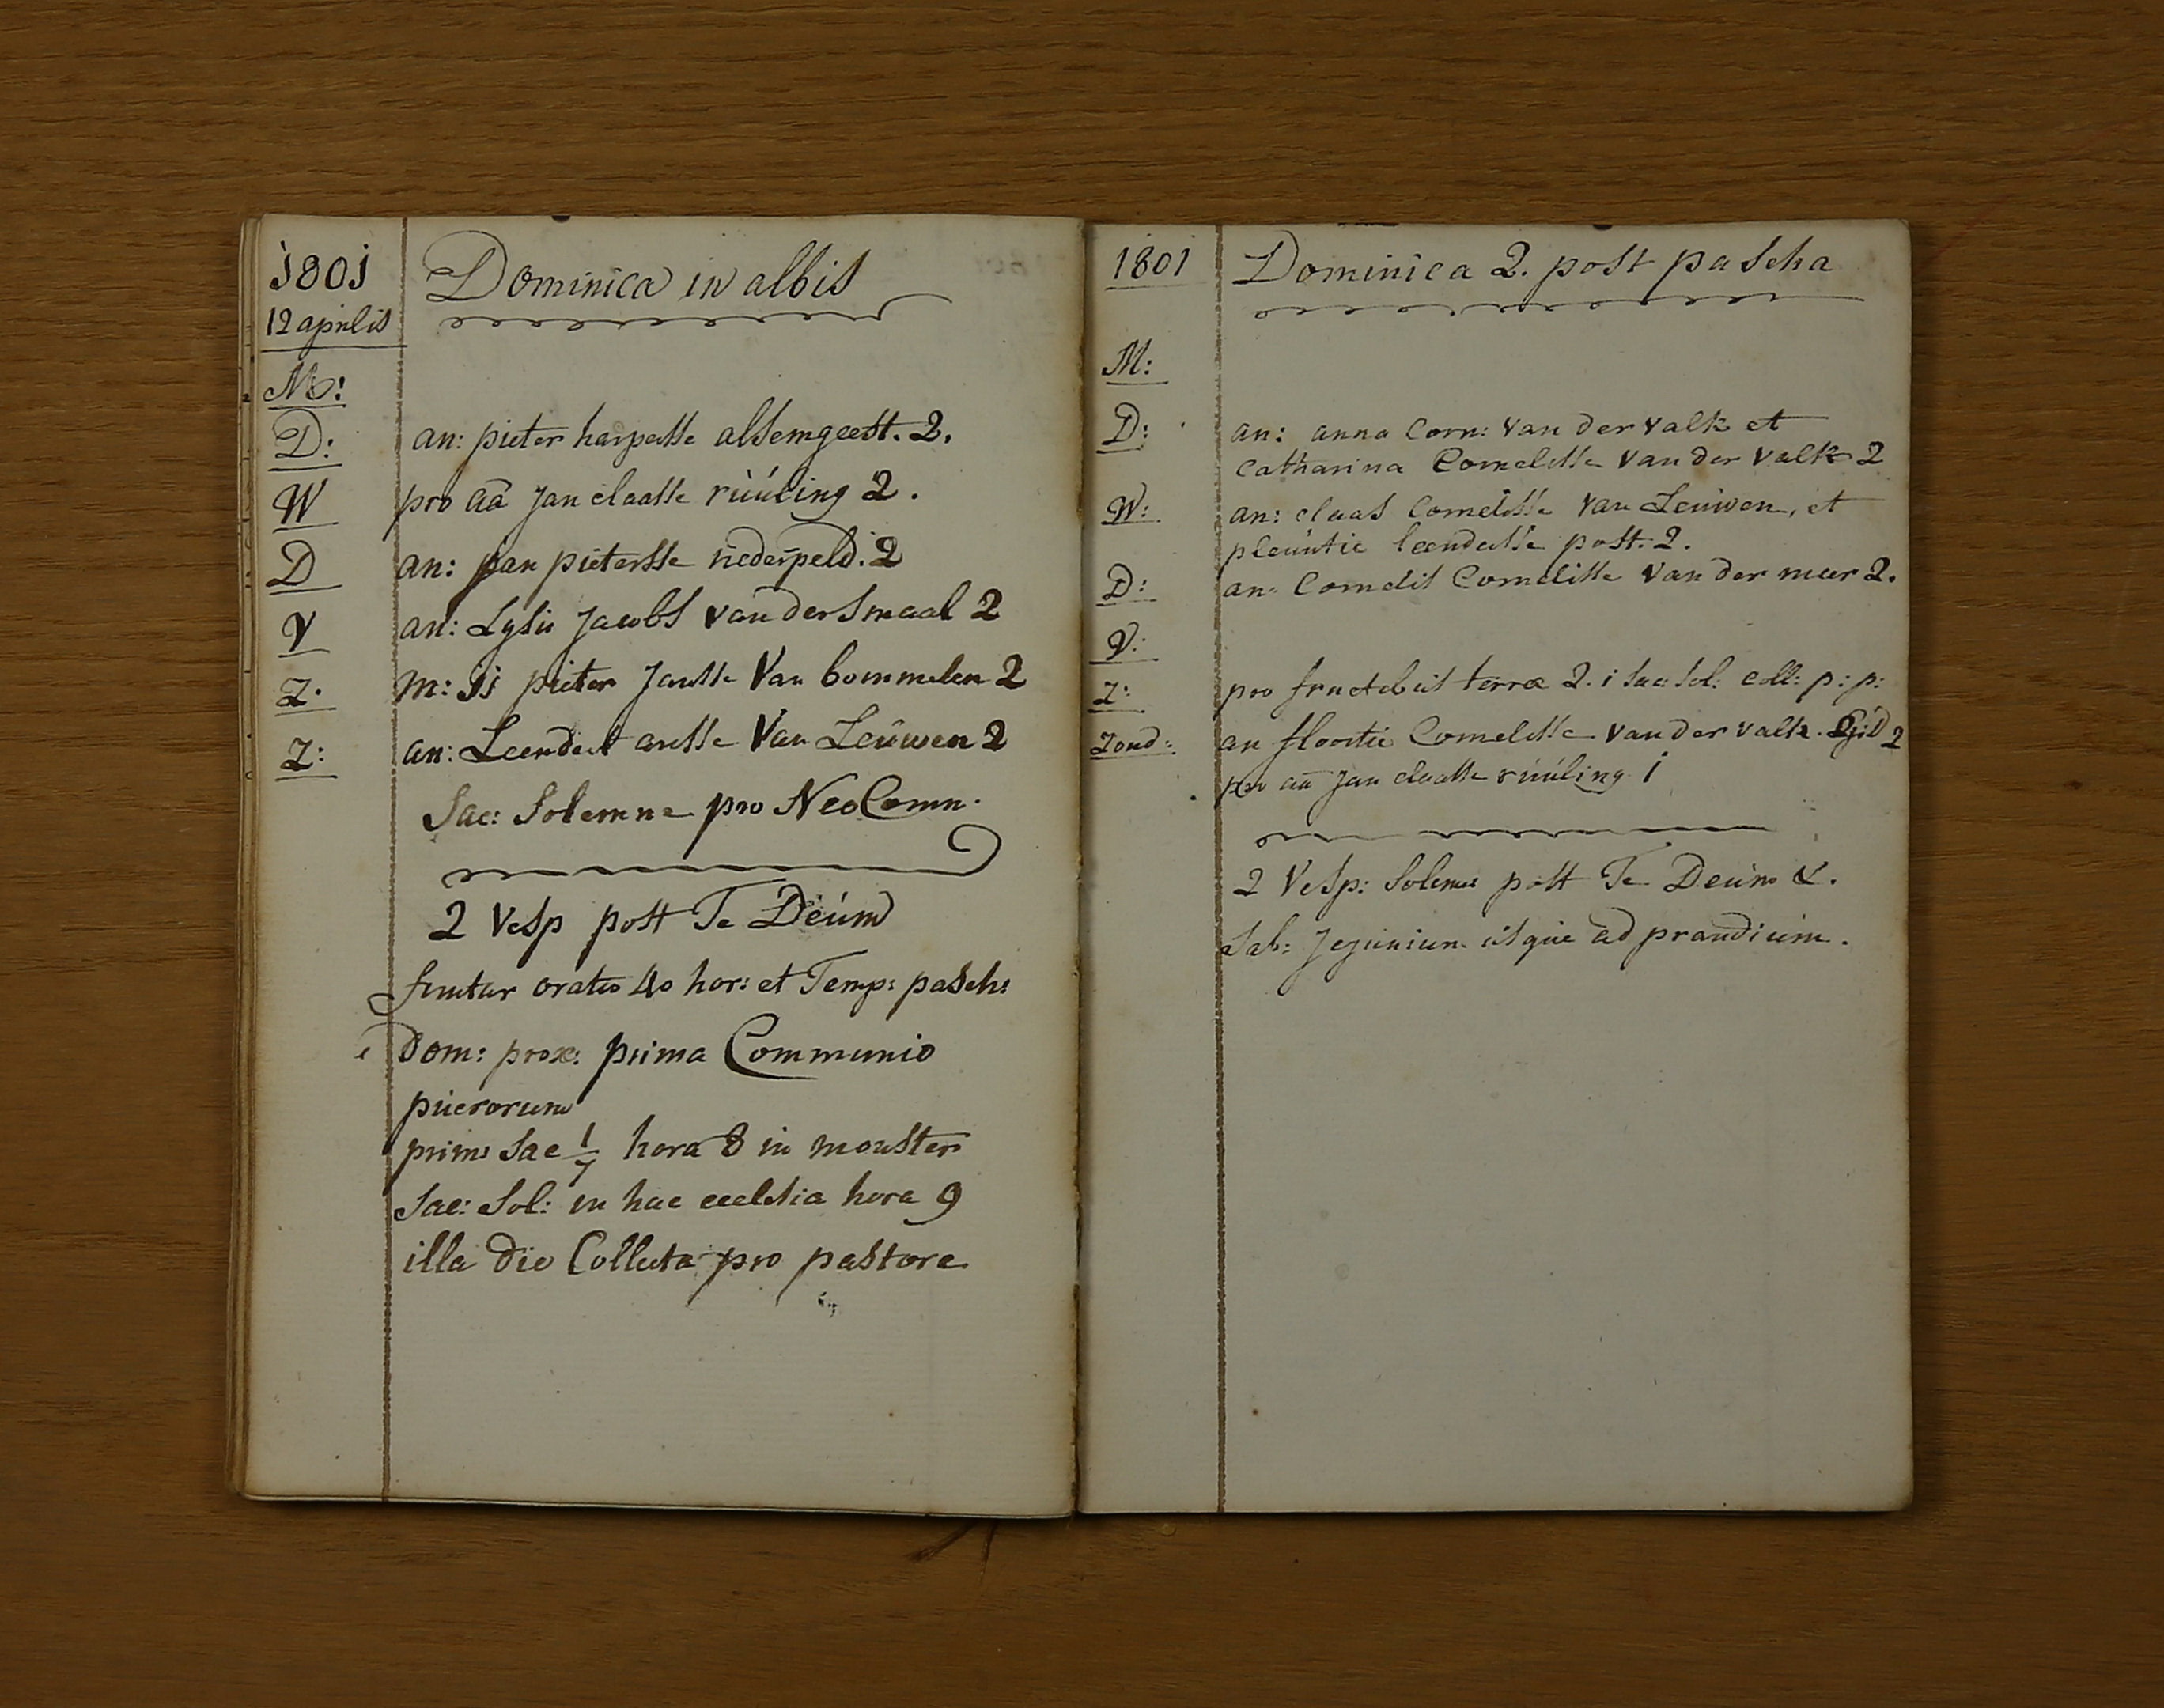 1801
12 aprilis
Dominica in albis
M:
D: an: pieter harpertse alsemgeest. 2.
W pro aa Jan claasse rúúling 2.
D an: Jan pietersse nederpeld. 2
V an: Lysie Jacobs van der Smaal 2
Z. m: is pieter Jansse Van bommelen 2
Z: an: Leendert arisse Van Leúwen 2
Sac: Solemne pro NeoComm.
2 Vesp post Te Deúm
finitur oratio 40 hor: et Temp: pasch:
Dom: prox: prima Communio
púerorum
prim: Sac 1/7 hora 8 in monster
Sac: Sol: in hac ecclesia hora 9
illa die Collecta pro pastore
1801 Dominica 2. post pascha
M:
D: an: anna Corn: Van der Valk et
catharina Cornelisse Van der Valk 2
W: an: claas Cornelisse Van Leúwen, et
pleúntie leendertse post. 2.
D: an: Cornelis Cornelisse Van der meer 2.
V:
Z: pro fructibús terræ 2. i sac: sol: coll: p: p:
Zond: an floortie Cornelisse van der valk. 2
pro aa Jan claasse rúúling i
2 Vesp: Solemnes post Te Deúm &.
Sab: Jejúniúm úsqúe ad prandiúm.